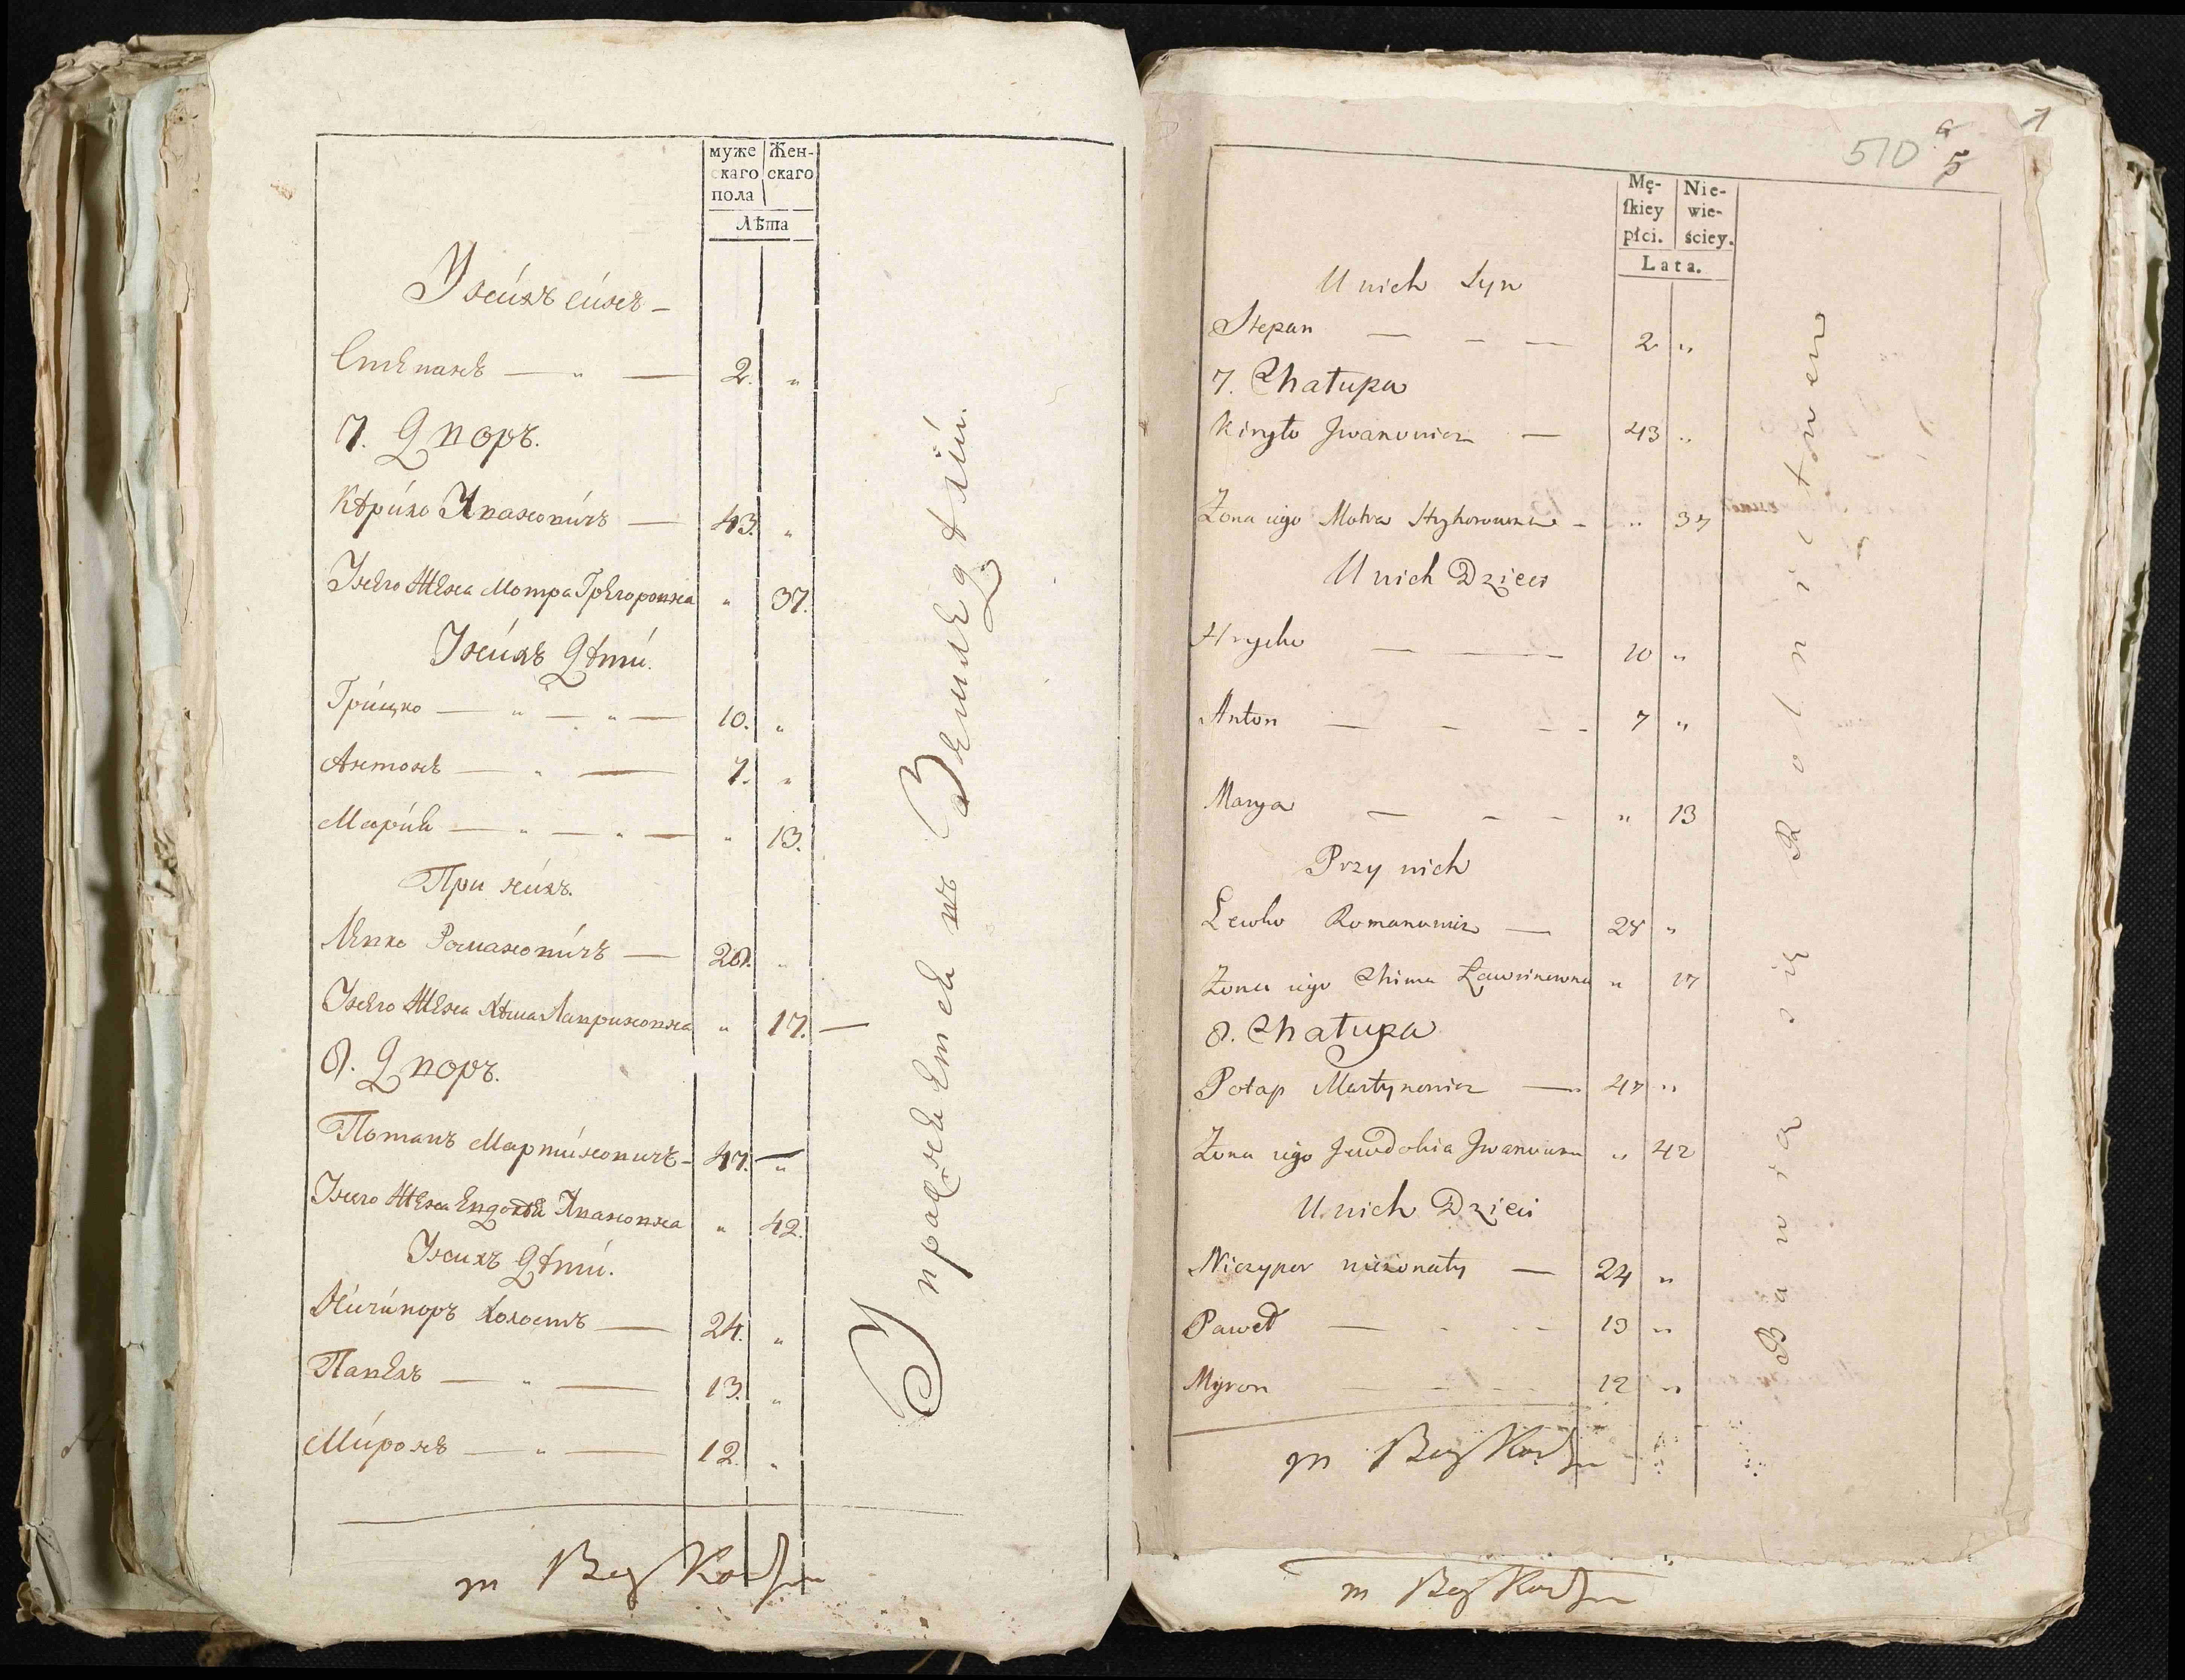 муже
скаго
пола
Жен-
скаго
Лѣта
У нихъ синъ —
Степанъ — " — 2. "
7. Дворъ.
Кѣрило Ивановичъ — 43. "
У него Жена Мотра Грегоровна " 37.
У нихъ Дѣти.
Грицко — " — " — 10. "
Антонъ — " — 7. "
Марія — " — " — " 13.
При нихъ.
Левко Романовичъ — 28. "
У него Жена Хѣма Лавриновна " 17. —
8. Дворъ.
Потапъ Мартиновичъ — 47. "
У него Жена Евдокѣя Ивановна " 42.
У нихъ Дѣти.
Ничипоръ холостъ — 24. "
Павелъ — " — 13. "
Миронъ — " — 12. "
Упражняется въ Земледѣліи.
m
510
5
1
Mę-
ſkiey
płci.
Nie-
wie-
ściey.
Lata.
U nich Syn
Stepan — - — 2 "
7. Chałupa
Kiryło Jwanowicz — 43 "
Żona iego Motra Hryhorowna - " 37
U nich Dzieci
Hrycko — — 10 "
Anton — - - - 7 "
Marya — - - " 13
Przy nich
Lewko Romanowicz — 28 "
Żona iego Chima Ławrinowna " 17
8. Chałupa
Potap Martynowicz — 47 "
Żona iego Jewdokia Jwanowna " 42
U nich Dzieci
Niczypor nieżonaty — 24 "
Paweł — - - - 13 "
Myron — - - - 12 "
Bawią się Rolnictwem
m
m